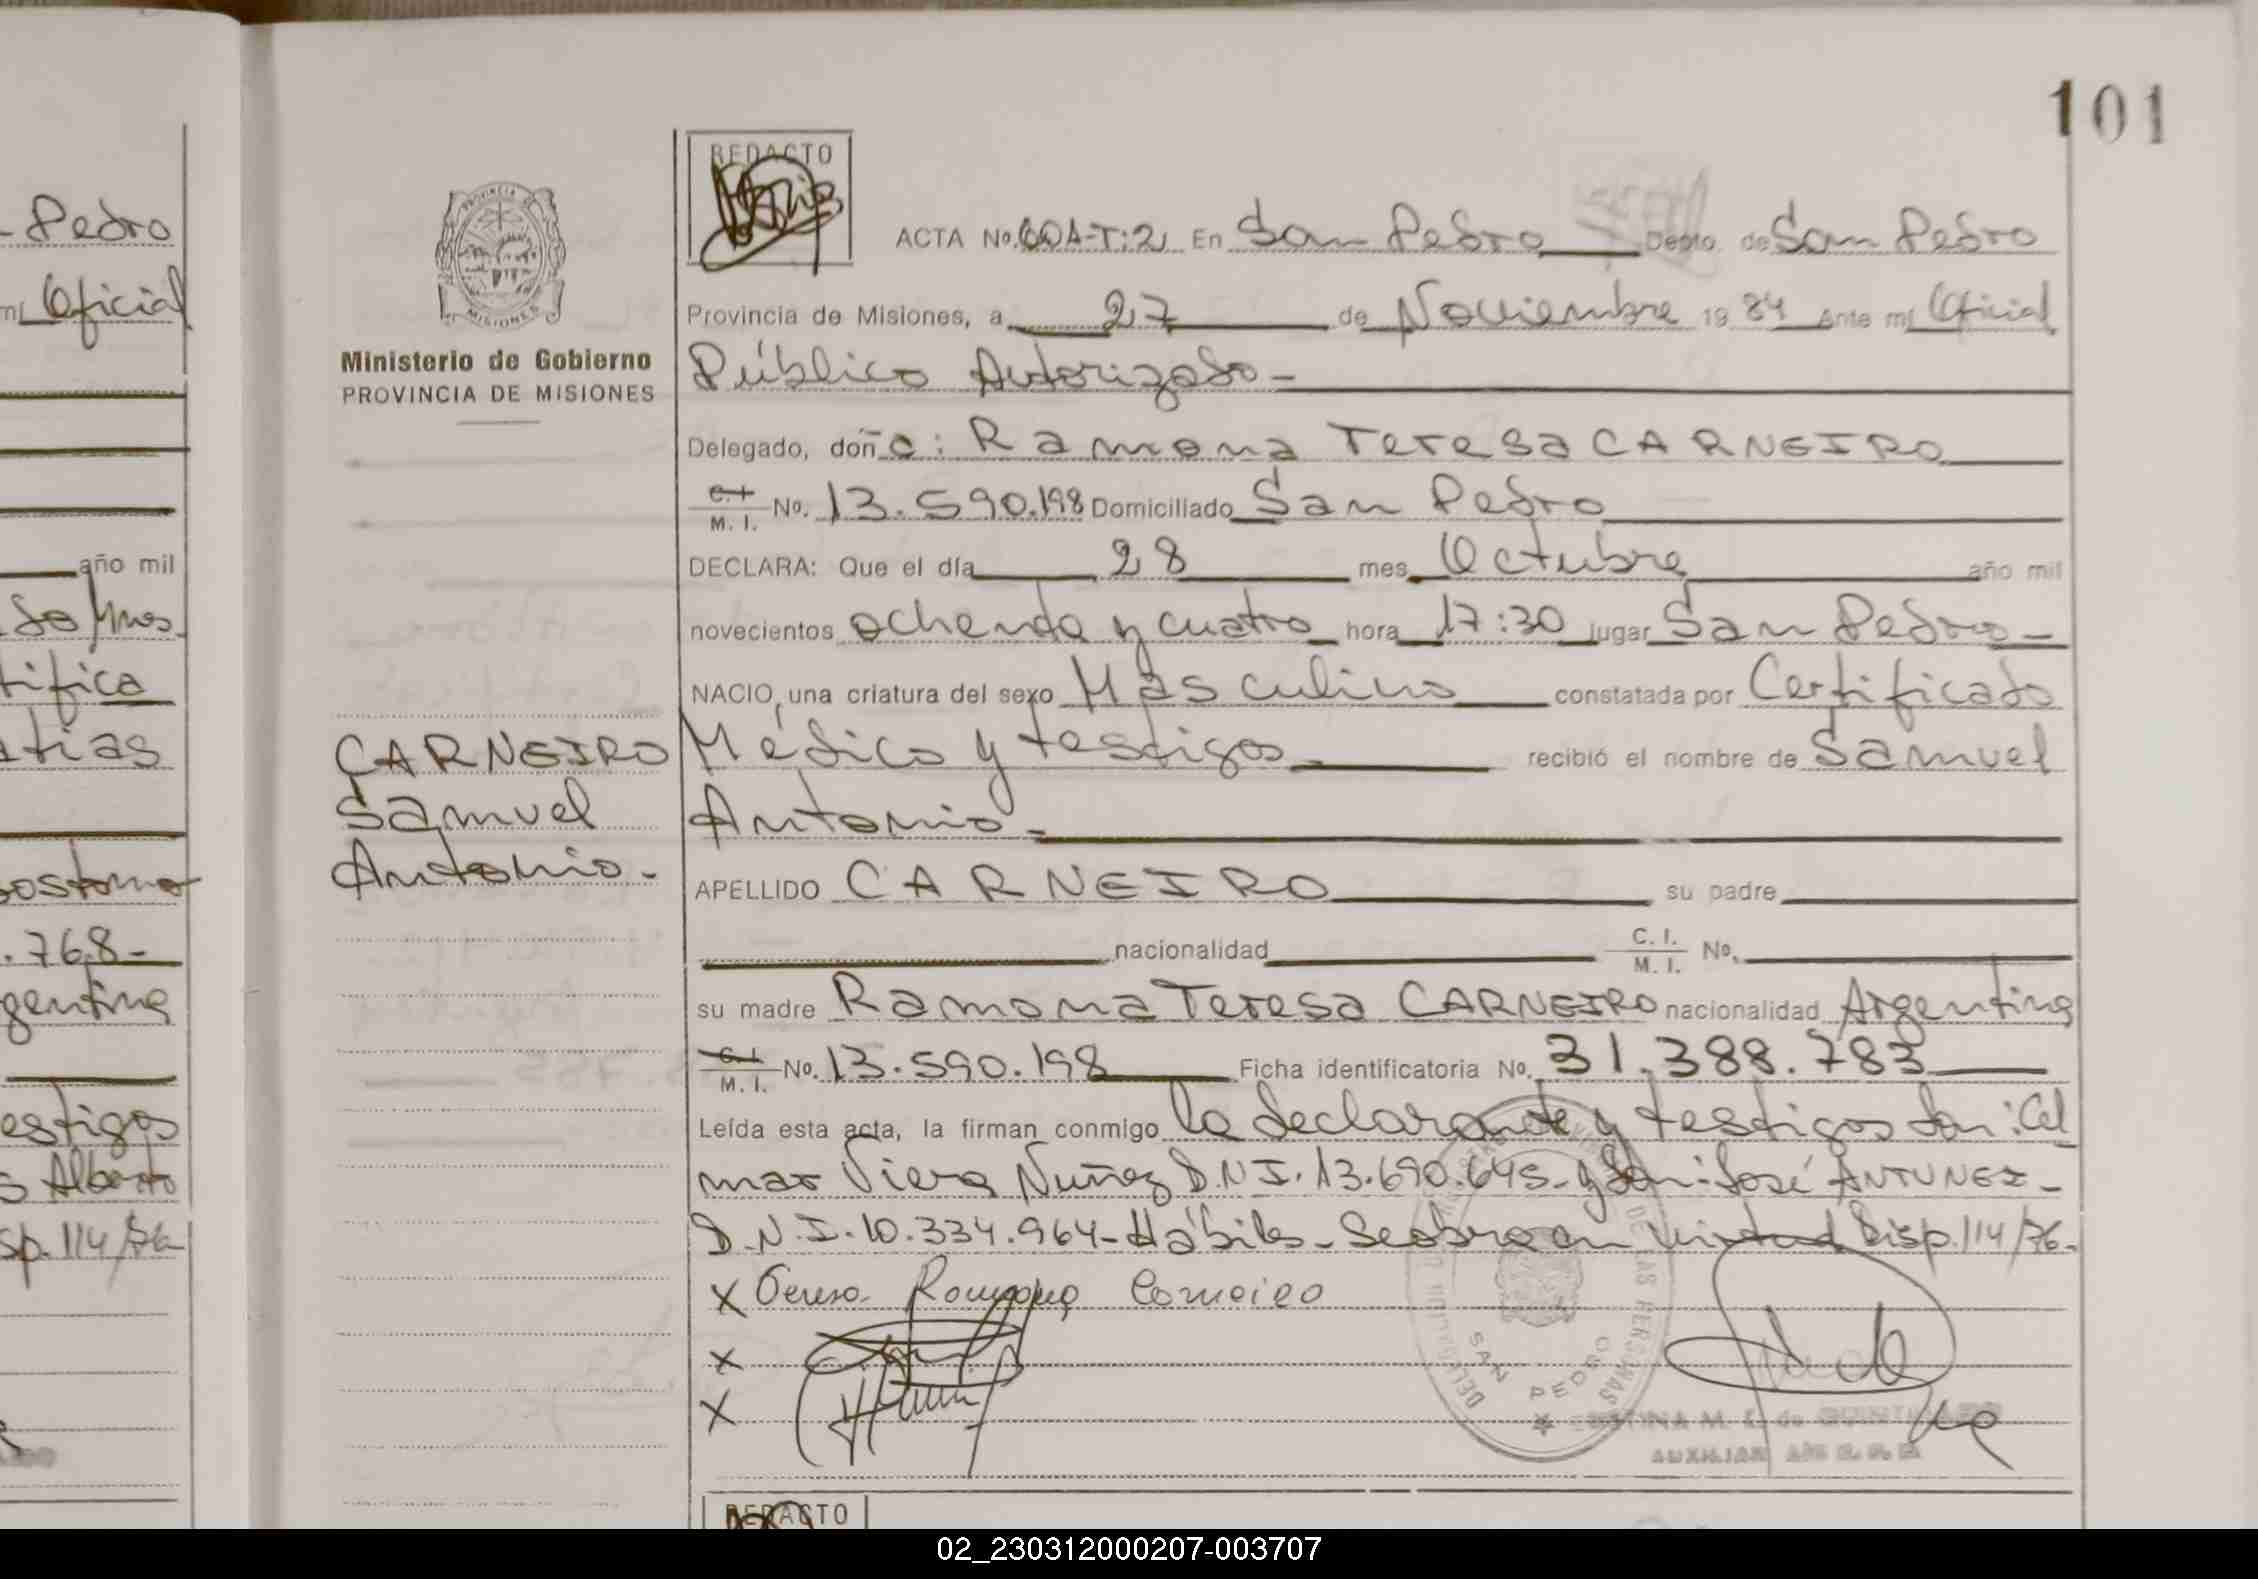 101
Pedro
Oficial
año mil
tífica
atías
.768-
gentina
estigos
s Alberto
sp. 114/76
PROVINCIA
MISIONES
Ministerio de Gobierno
PROVINCIA DE MISIONES
CARNEIRO
Samuel
Antonio.-
REDACTO
ACTA No. 601-T:2 En San Pedro Depto. de San Pedro
Provincia de Misiones, a 27 de Noviembre 1984 Ante mí Oficial
Público Autorizado-
Delegado, doña: Ramona Teresa CARNEIRO
C.I. M. I. No. 13.590.198 Domiciliado San Pedro
DECLARA: Que el día 28 mes Octubre año mil
novecientos ochenta y cuatro hora 17:30 lugar San Pedro-
NACIO, una criatura del sexo Masculino constatada por Certificado
Médico y testigos recibió el nombre de Samuel
Antonio-
APELLIDO CARNEIRO su padre
nacionalidad C. I. M. I. No.
su madre Ramona Teresa CARNEIRO nacionalidad Argentina
C.I. M. I. No. 13.590.198 Ficha identificatoria No. 31.388.783
Leída esta acta, la firman conmigo la declarante y testigos don: Cel
mar Viera Nuñez D.N.I. 13.690.645- y don: José ANTUNEZ-
D.N.I. 10.334.964- Hábiles- Se obra en virtud Disp. 114/76-
x Teresa Ramona Carneiro
x
x
SAN PEDRO
DE LAS PERSONAS
AUXILIAR
REDACTO
02_230312000207-003707